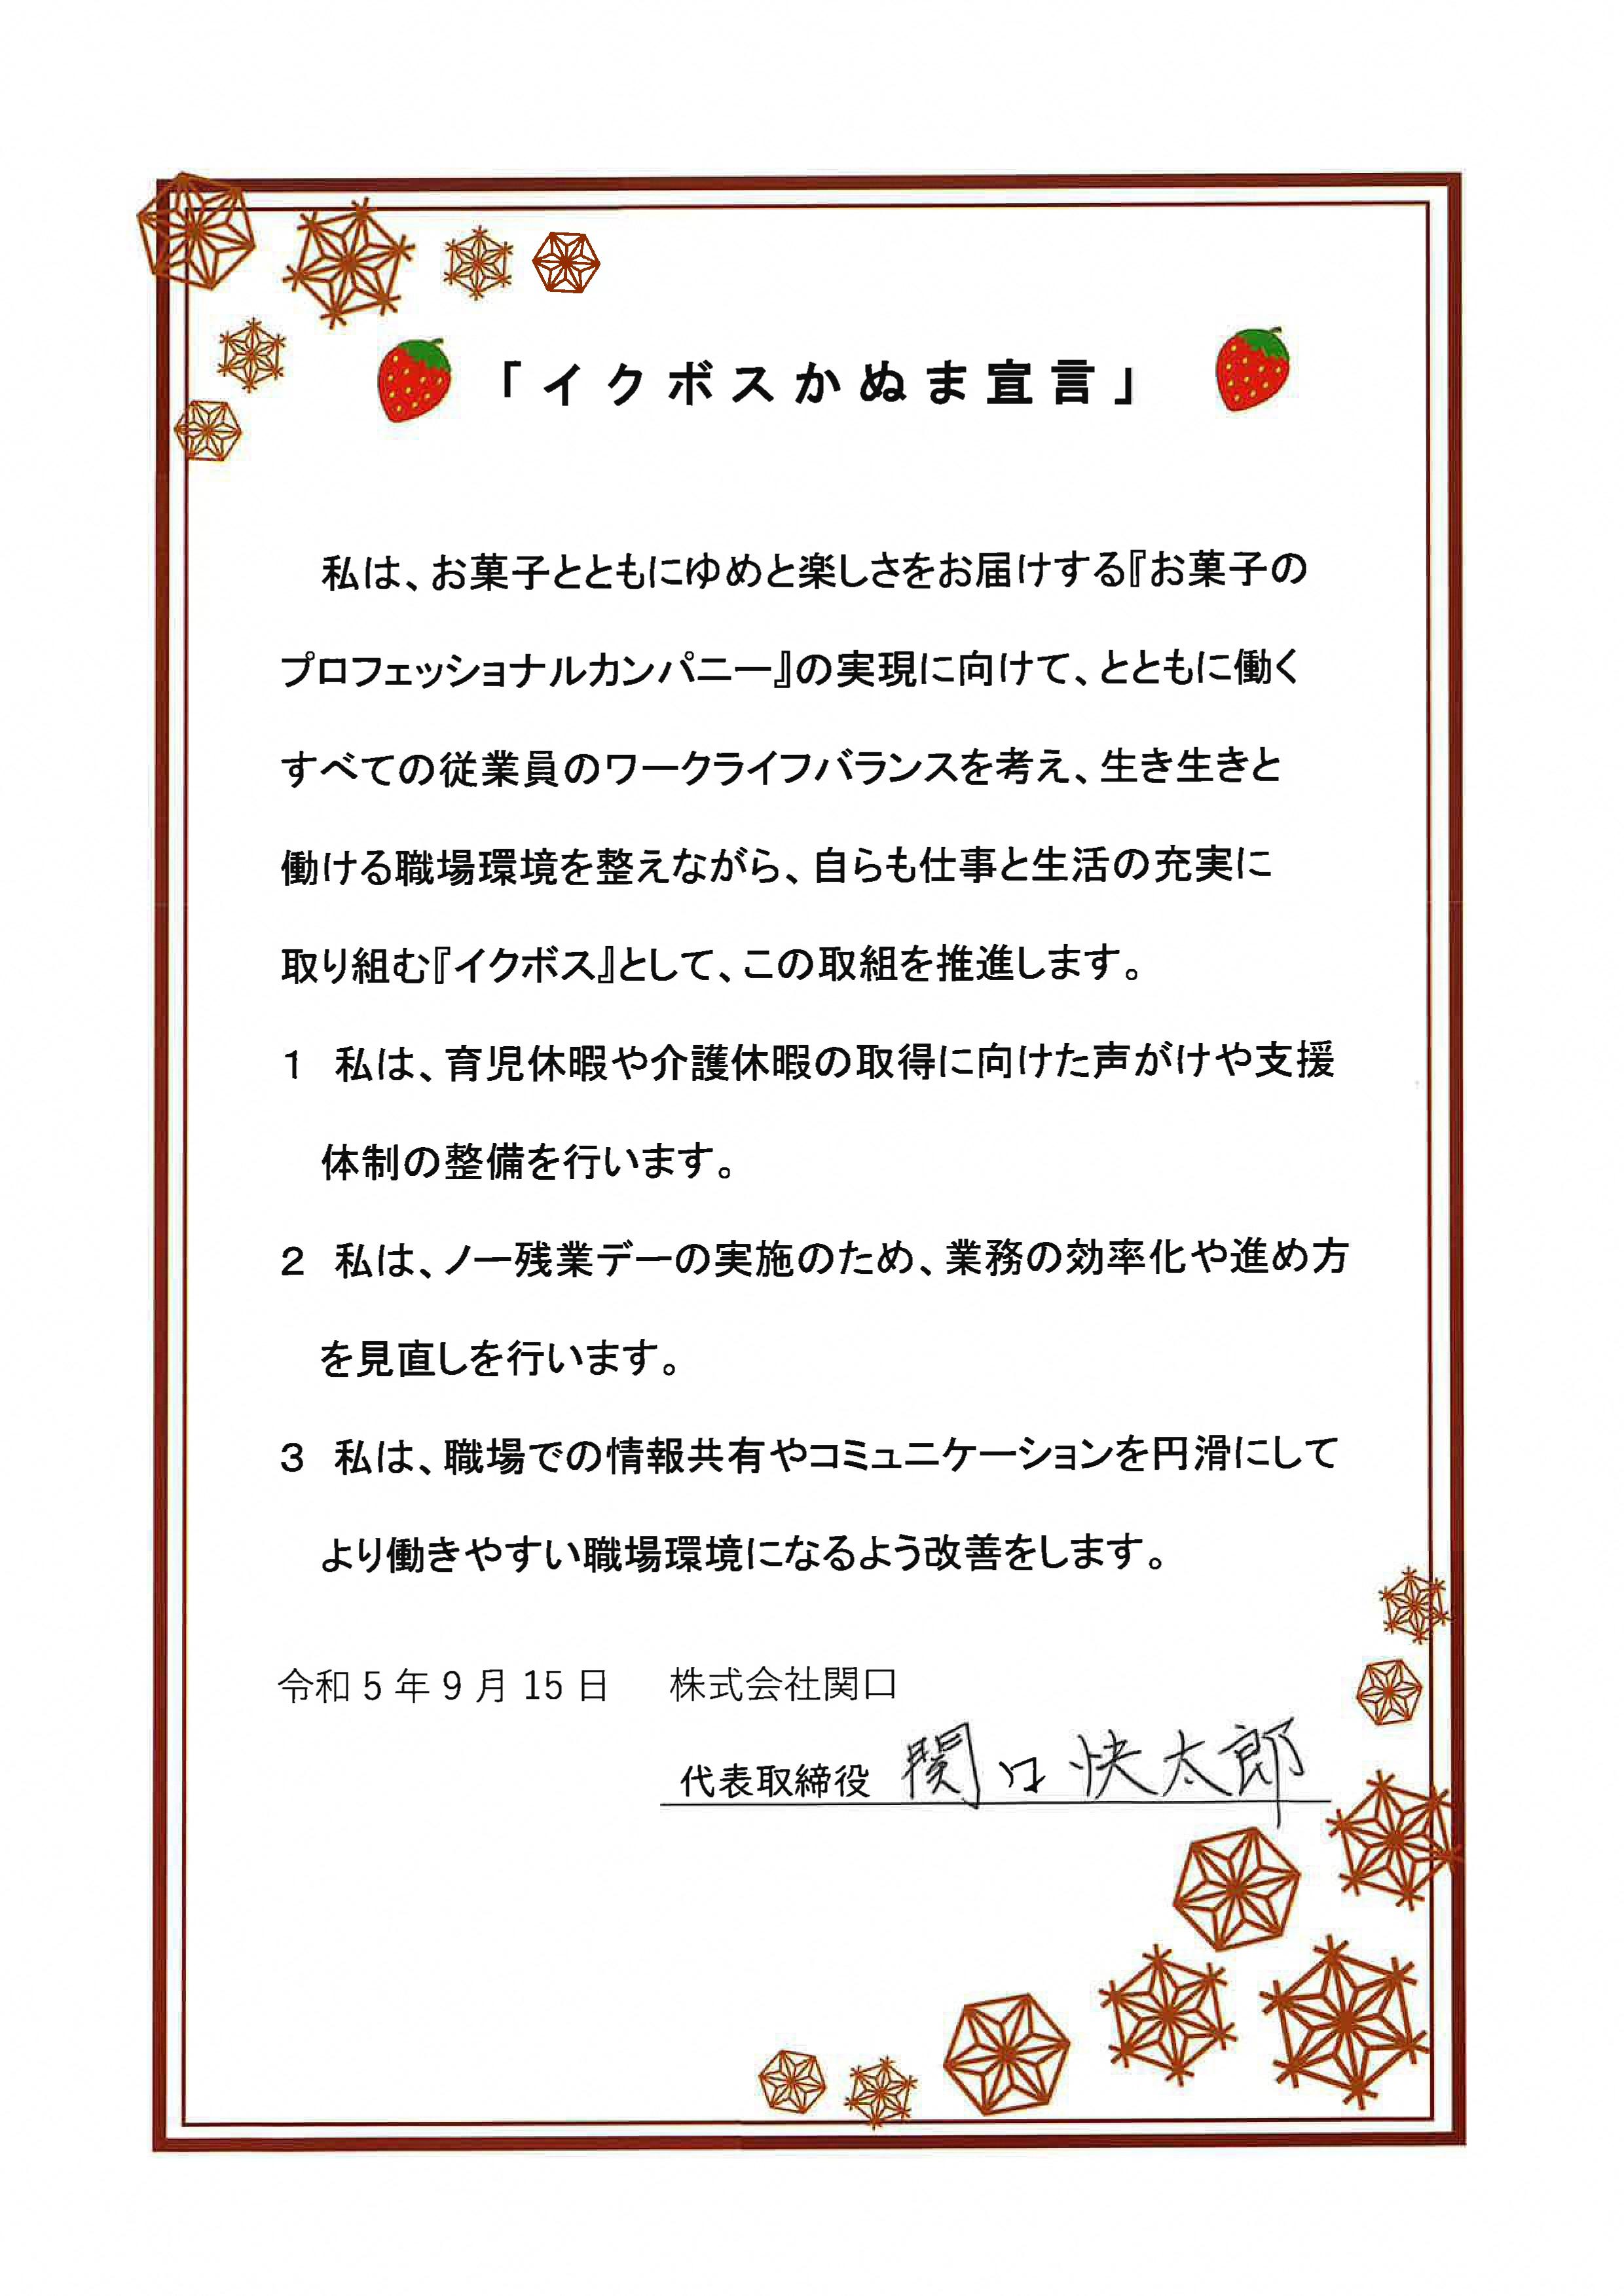 「イクボスかぬま宣言」
私は、お菓子とともにゆめと楽しさをお届けする『お菓子の
プロフェッショナルカンパニー』の実現に向けて、とともに働く
すべての従業員のワークライフバランスを考え、生き生きと
働ける職場環境を整えながら、自らも仕事と生活の充実に
取り組む『イクボス』として、この取組を推進します。
1　私は、育児休暇や介護休暇の取得に向けた声がけや支援
体制の整備を行います。
2　私は、ノー残業デーの実施のため、業務の効率化や進め方
を見直しを行います。
3　私は、職場での情報共有やコミュニケーションを円滑にして
より働きやすい職場環境になるよう改善をします。
令和 5 年 9 月 15 日　株式会社関口
代表取締役 関口 快太郎